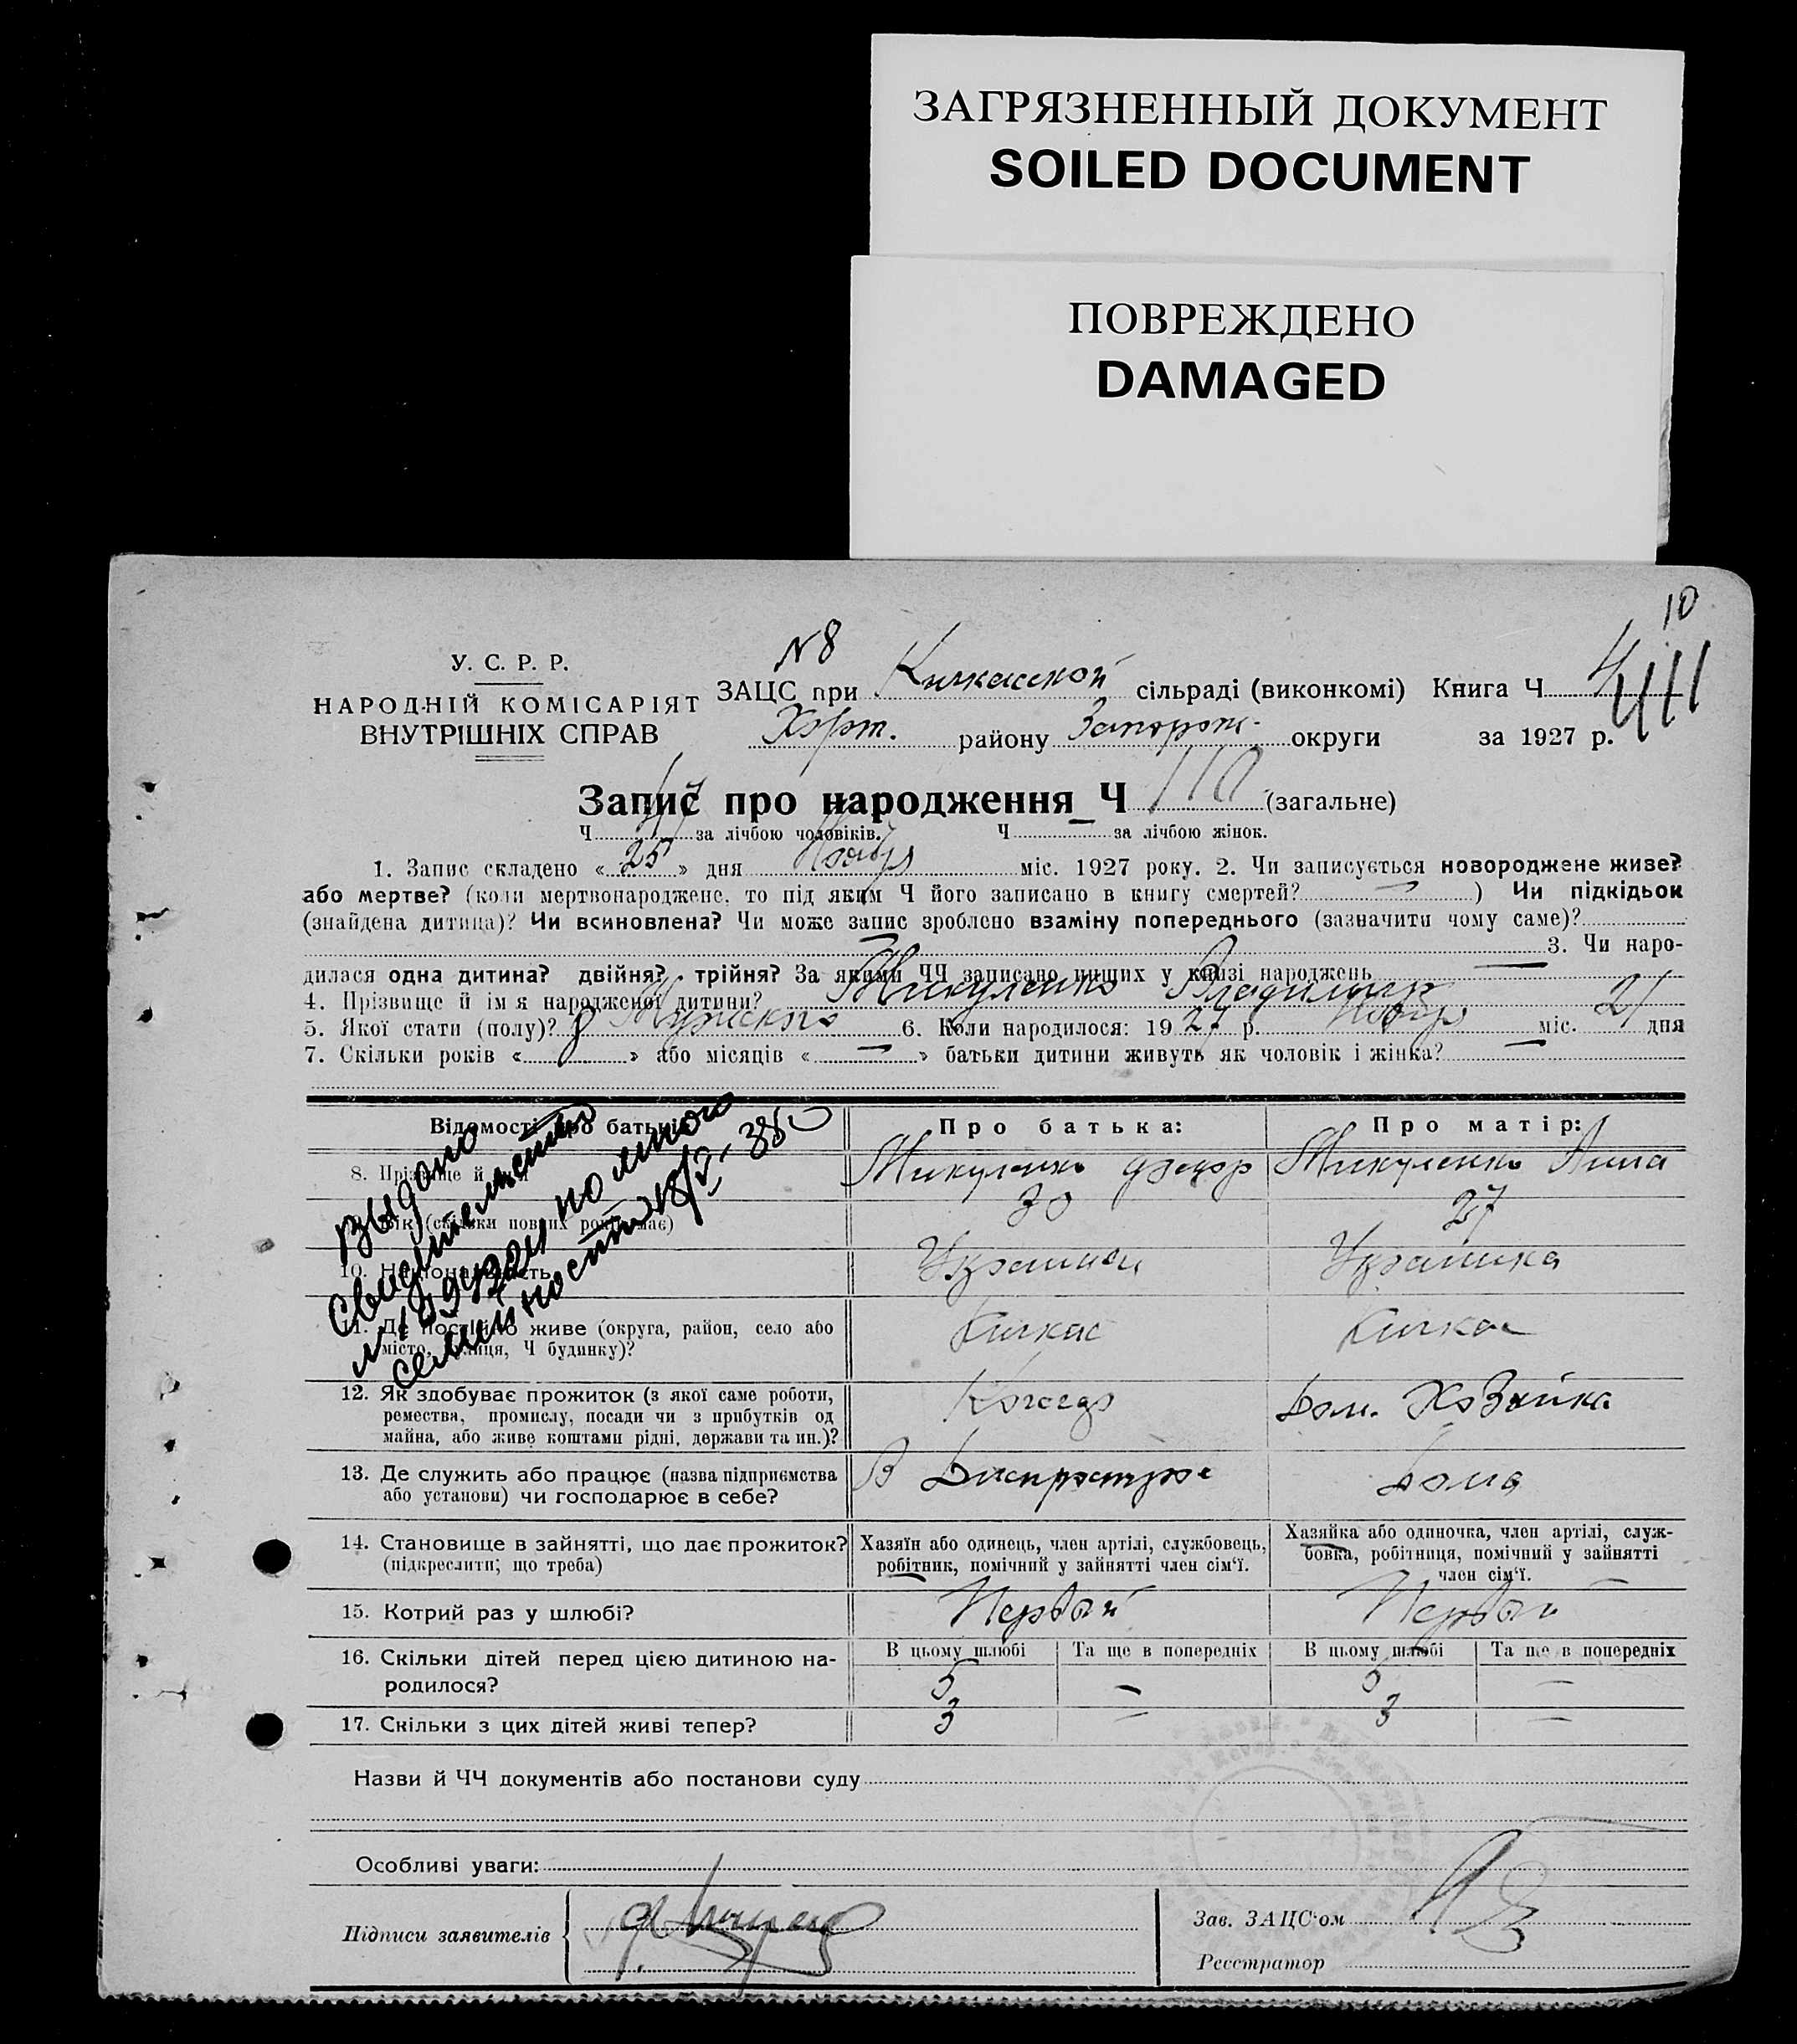 ЗАГРЯЗНЕННЫЙ ДОКУМЕНТ
SOILED DOCUMENT
ПОВРЕЖДЕНО
DAMAGED
10
У. С. Р. Р.
НАРОДНІЙ КОМІСАРІЯТ
ВНУТРІШНІХ СПРАВ
N8
ЗАЦС при Кичкасской сільраді (виконкомі) Книга Ч 4
Хорт. району Запорож. округи за 1927 р.
Запис про народження Ч 110 (загальне)
Ч за лічбою чоловіків. Ч за лічбою жінок.
1. Запис складено « 25 » дня Ноябр міс. 1927 року. 2. Чи записується новороджене живе?
або мертве? (коли мертвонароджене, то під яким Ч його записано в книгу смертей? — ) Чи підкідьок
(знайдена дитина)? Чи всиновлена? Чи може запис зроблено взаміну попереднього (зазначити чому саме)?
— 3. Чи наро-
дилася одна дитина? двійня? трійня? За якими ЧЧ записано инших у книзі народжень —
4. Прізвище й ім'я народженої дитини? Микуленко Владимир
5. Якої стати (полу)? Мужского 6. Коли народилося: 1927 р. Ноябр міс. 21 дня
7. Скільки років « » або місяців « — » батьки дитини живуть як чоловік і жінка? —
Відомості про батьків Про батька: Про матір:
8. Прізвище й ім'я Микуленко Федор Микуленко Анна
9. Вік (скільки повних років має) 30 27
10. Національність Украинец Украинка
11. Де постійно живе (округа, район, село або Кичкас Кичкас
місто, вулиця, Ч будинку)?
Выдано
свидительство
по много
семейности
12. Як здобуває прожиток (з якої саме роботи, Дом. Хозяйка
ремества, промислу, посади чи з прибутків од
майна, або живе коштами рідні, держави та ин.)?
13. Де служить або працює (назва підприємства В Днепрострое Дома
або установи) чи господарює в себе?
14. Становище в зайнятті, що дає прожиток? Хазяїн або одинець, член артілі, службовець, Хазяйка або одиночка, член артілі, служ-
(підкреслити, що треба) робітник, помічний у зайнятті член сім'ї. бовка, робітниця, помічний у зайнятті
член сім'ї.
15. Котрий раз у шлюбі? Первый Первый
16. Скільки дітей перед цією дитиною на- В цьому шлюбі Та ще в попередніх В цьому шлюбі Та ще в попередніх
родилося? 5 — 5 —
17. Скільки з цих дітей живі тепер? 3 — 3 —
Назви й ЧЧ документів або постанови суду
Особливі уваги:
Підписи заявителів
Зав. ЗАЦС'ом
Реєстратор